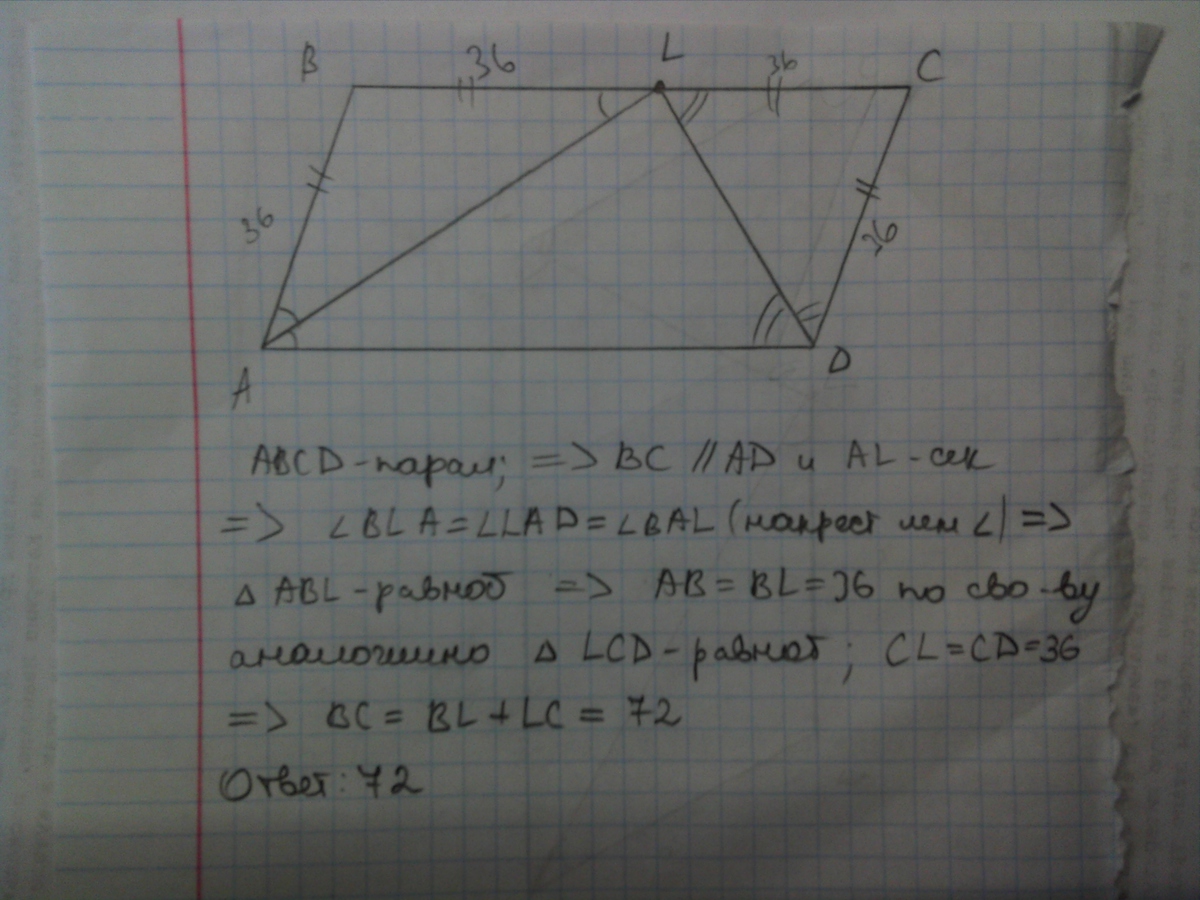 B 36 L 36 C
36 36
A D
ABCD-парал; => BC // AD и AL-сек
=> ∠BLA=∠LAD=∠BAL (накрест леж ∠) =>
△ ABL-равноб => AB = BL = 36 по сво-ву
аналогично △ LCD-равноб; CL=CD=36
=> BC = BL + LC = 72
Ответ: 72